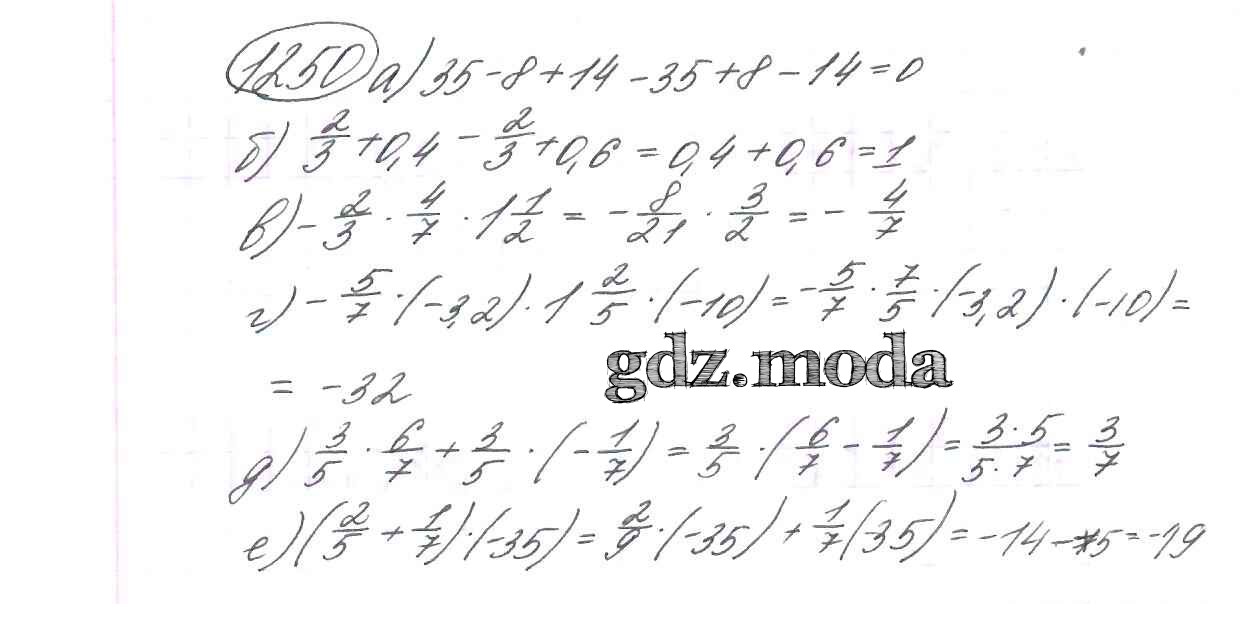 1250 а) 35 - 8 + 14 - 35 + 8 - 14 = 0
б) 2/3 + 0,4 - 2/3 + 0,6 = 0,4 + 0,6 = 1
в) - 2/3 · 4/7 · 1 1/2 = - 8/21 · 3/2 = - 4/7
г) - 5/7 · (-3,2) · 1 2/5 · (-10) = - 5/7 · 7/5 · (-3,2) · (-10) =
gdz.moda
= -32
д) 3/5 · 6/7 + 3/5 · (- 1/7) = 3/5 · (6/7 - 1/7) = 3·5/5·7 = 3/7
е) (2/5 + 1/7) · (-35) = 2/9 · (-35) + 1/7 (35) = -14 - 5 = -19